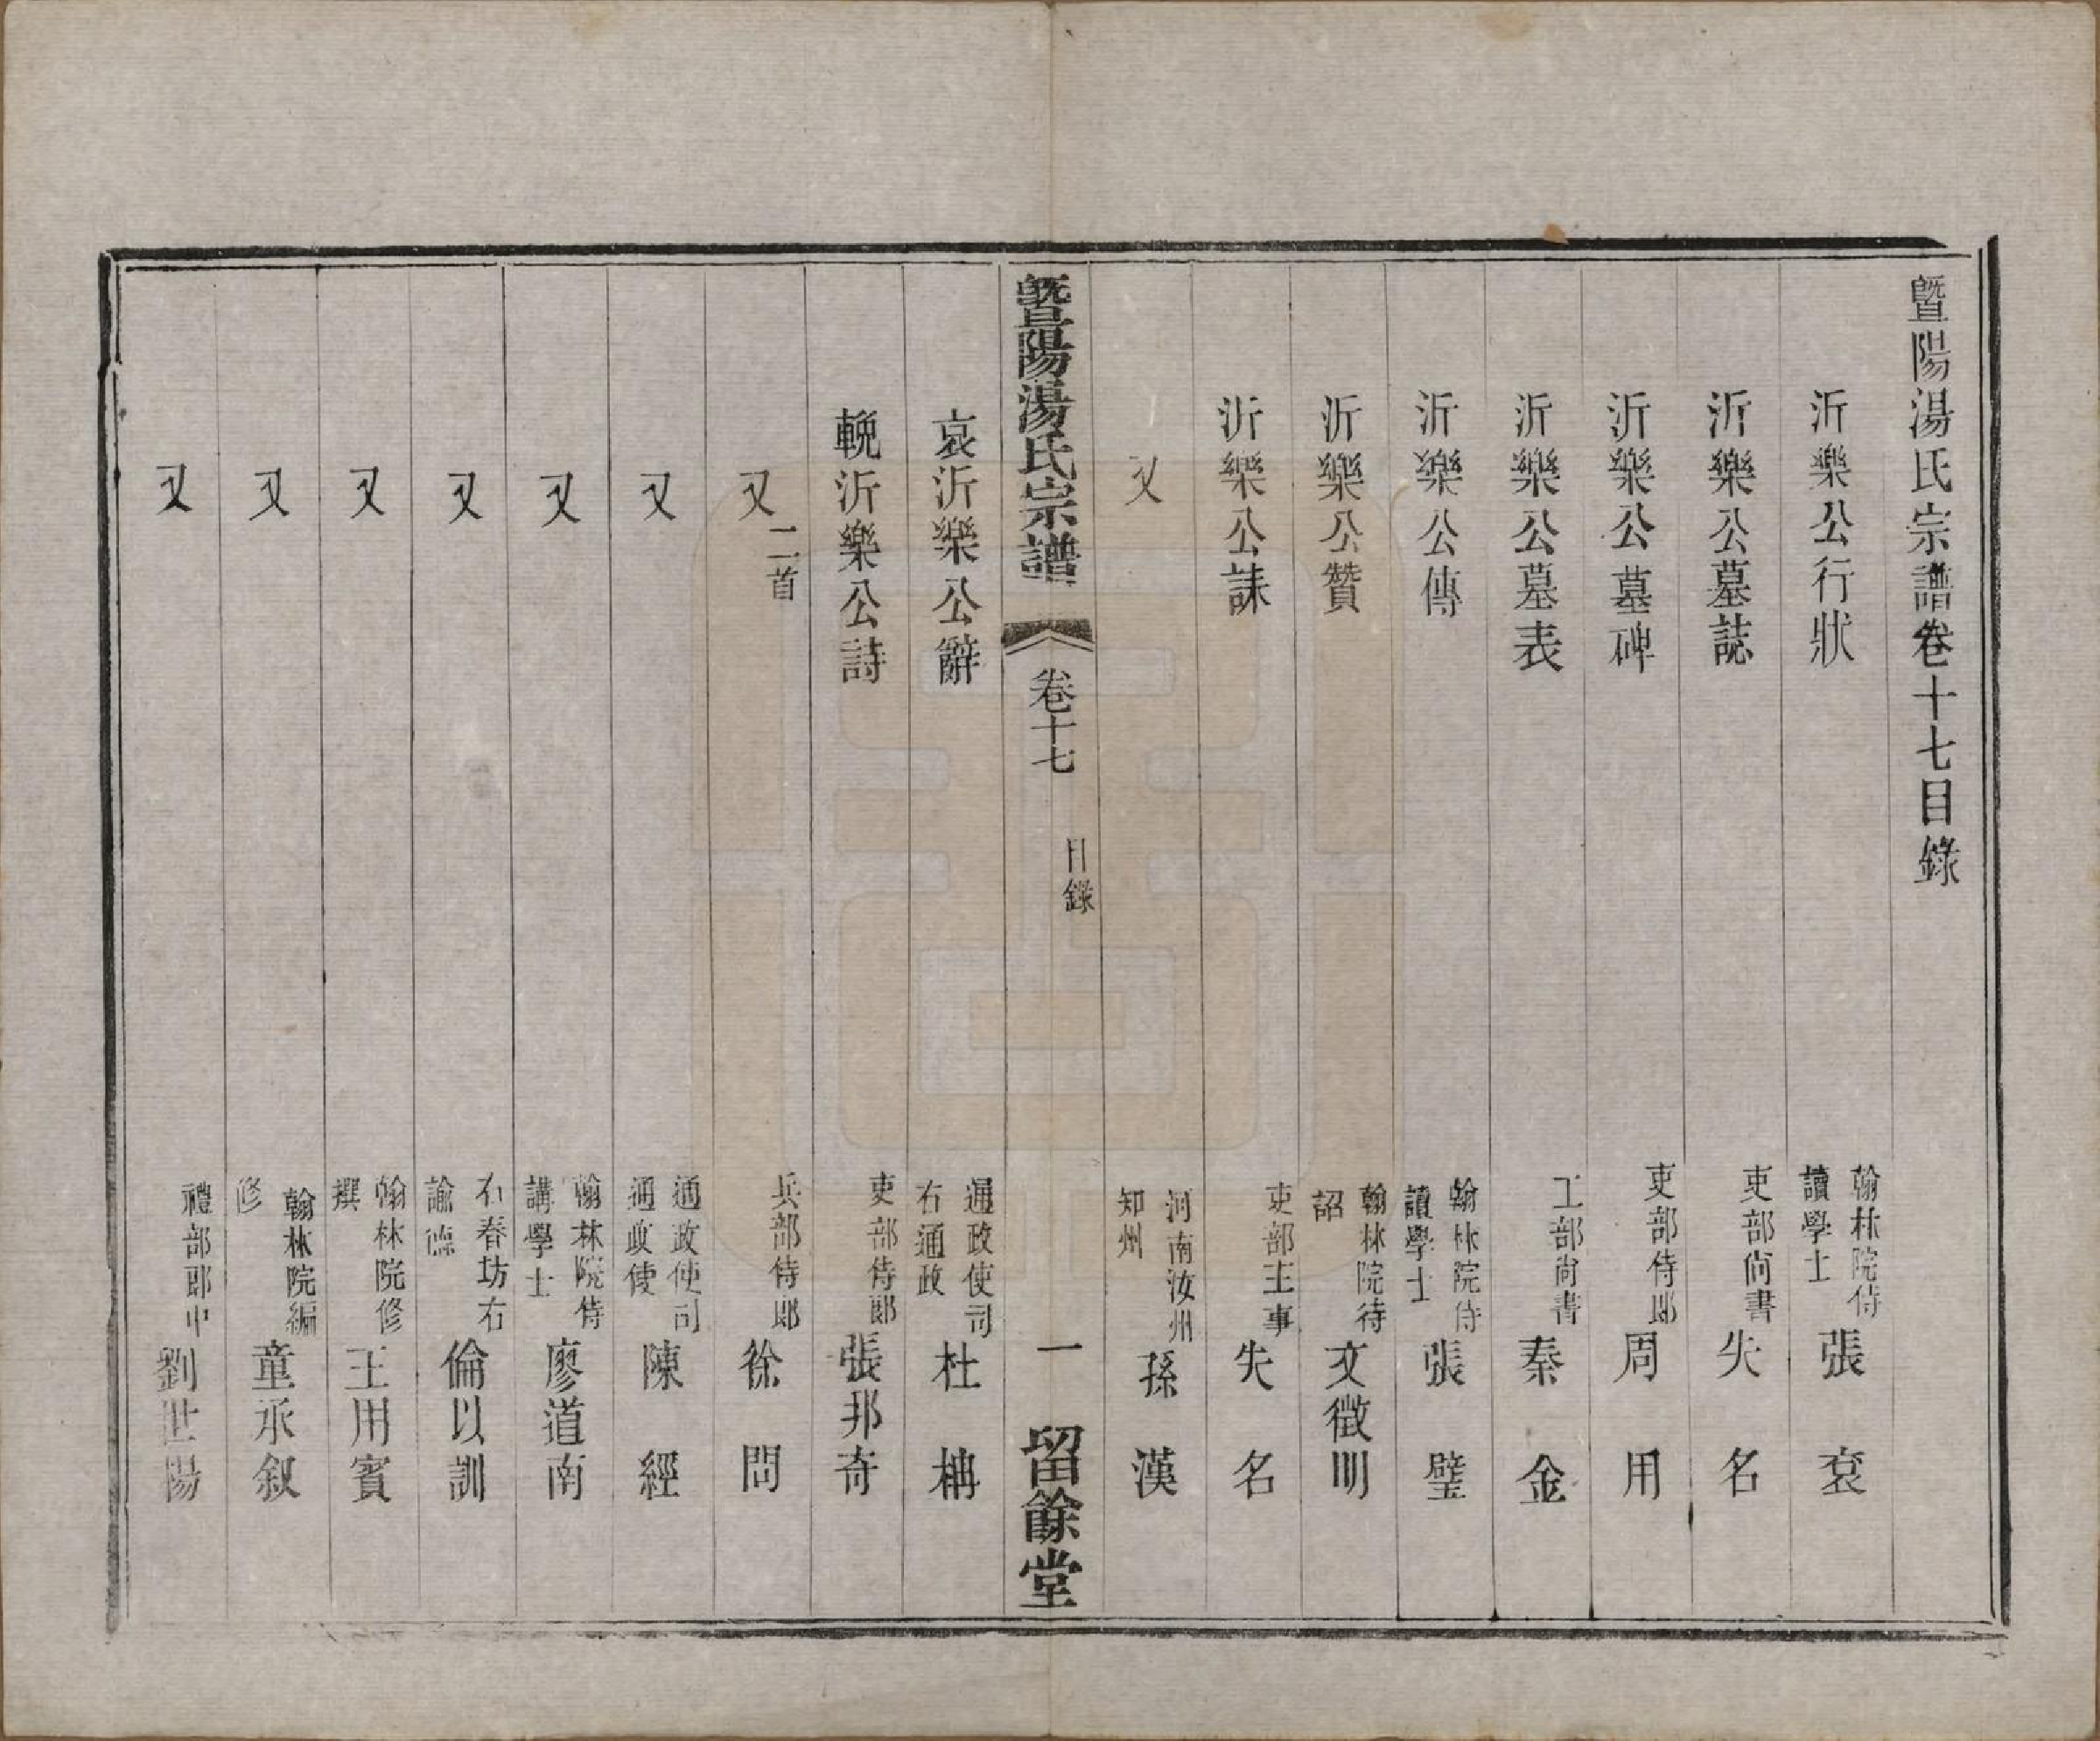 暨陽湯氏宗譜卷十七目錄
沂樂公行狀 翰林院侍讀學士 張袞
沂樂公墓誌 吏部尙書 失名
沂樂公墓碑 吏部侍郎 周用
沂樂公墓表 工部尙書 秦金
沂樂公傳 翰林院侍讀學士 張璧
沂樂公贊 翰林院待詔 文徵明
沂樂公誄 吏部主事 失名
又 河南汝州知州 孫漢
暨陽湯氏宗譜 卷十七 目錄 一 留餘堂
哀沂樂公辭 通政使司右通政 杜柟
輓沂樂公詩 吏部侍郎 張邦奇
又二首 兵部侍郎 徐問
又 通政使司通政使 陳經
又 翰林院侍講學士 廖道南
又 右春坊右諭德 倫以訓
又 翰林院修撰 王用賓
又 翰林院編修 童承叙
又 禮部郎中 劉世陽